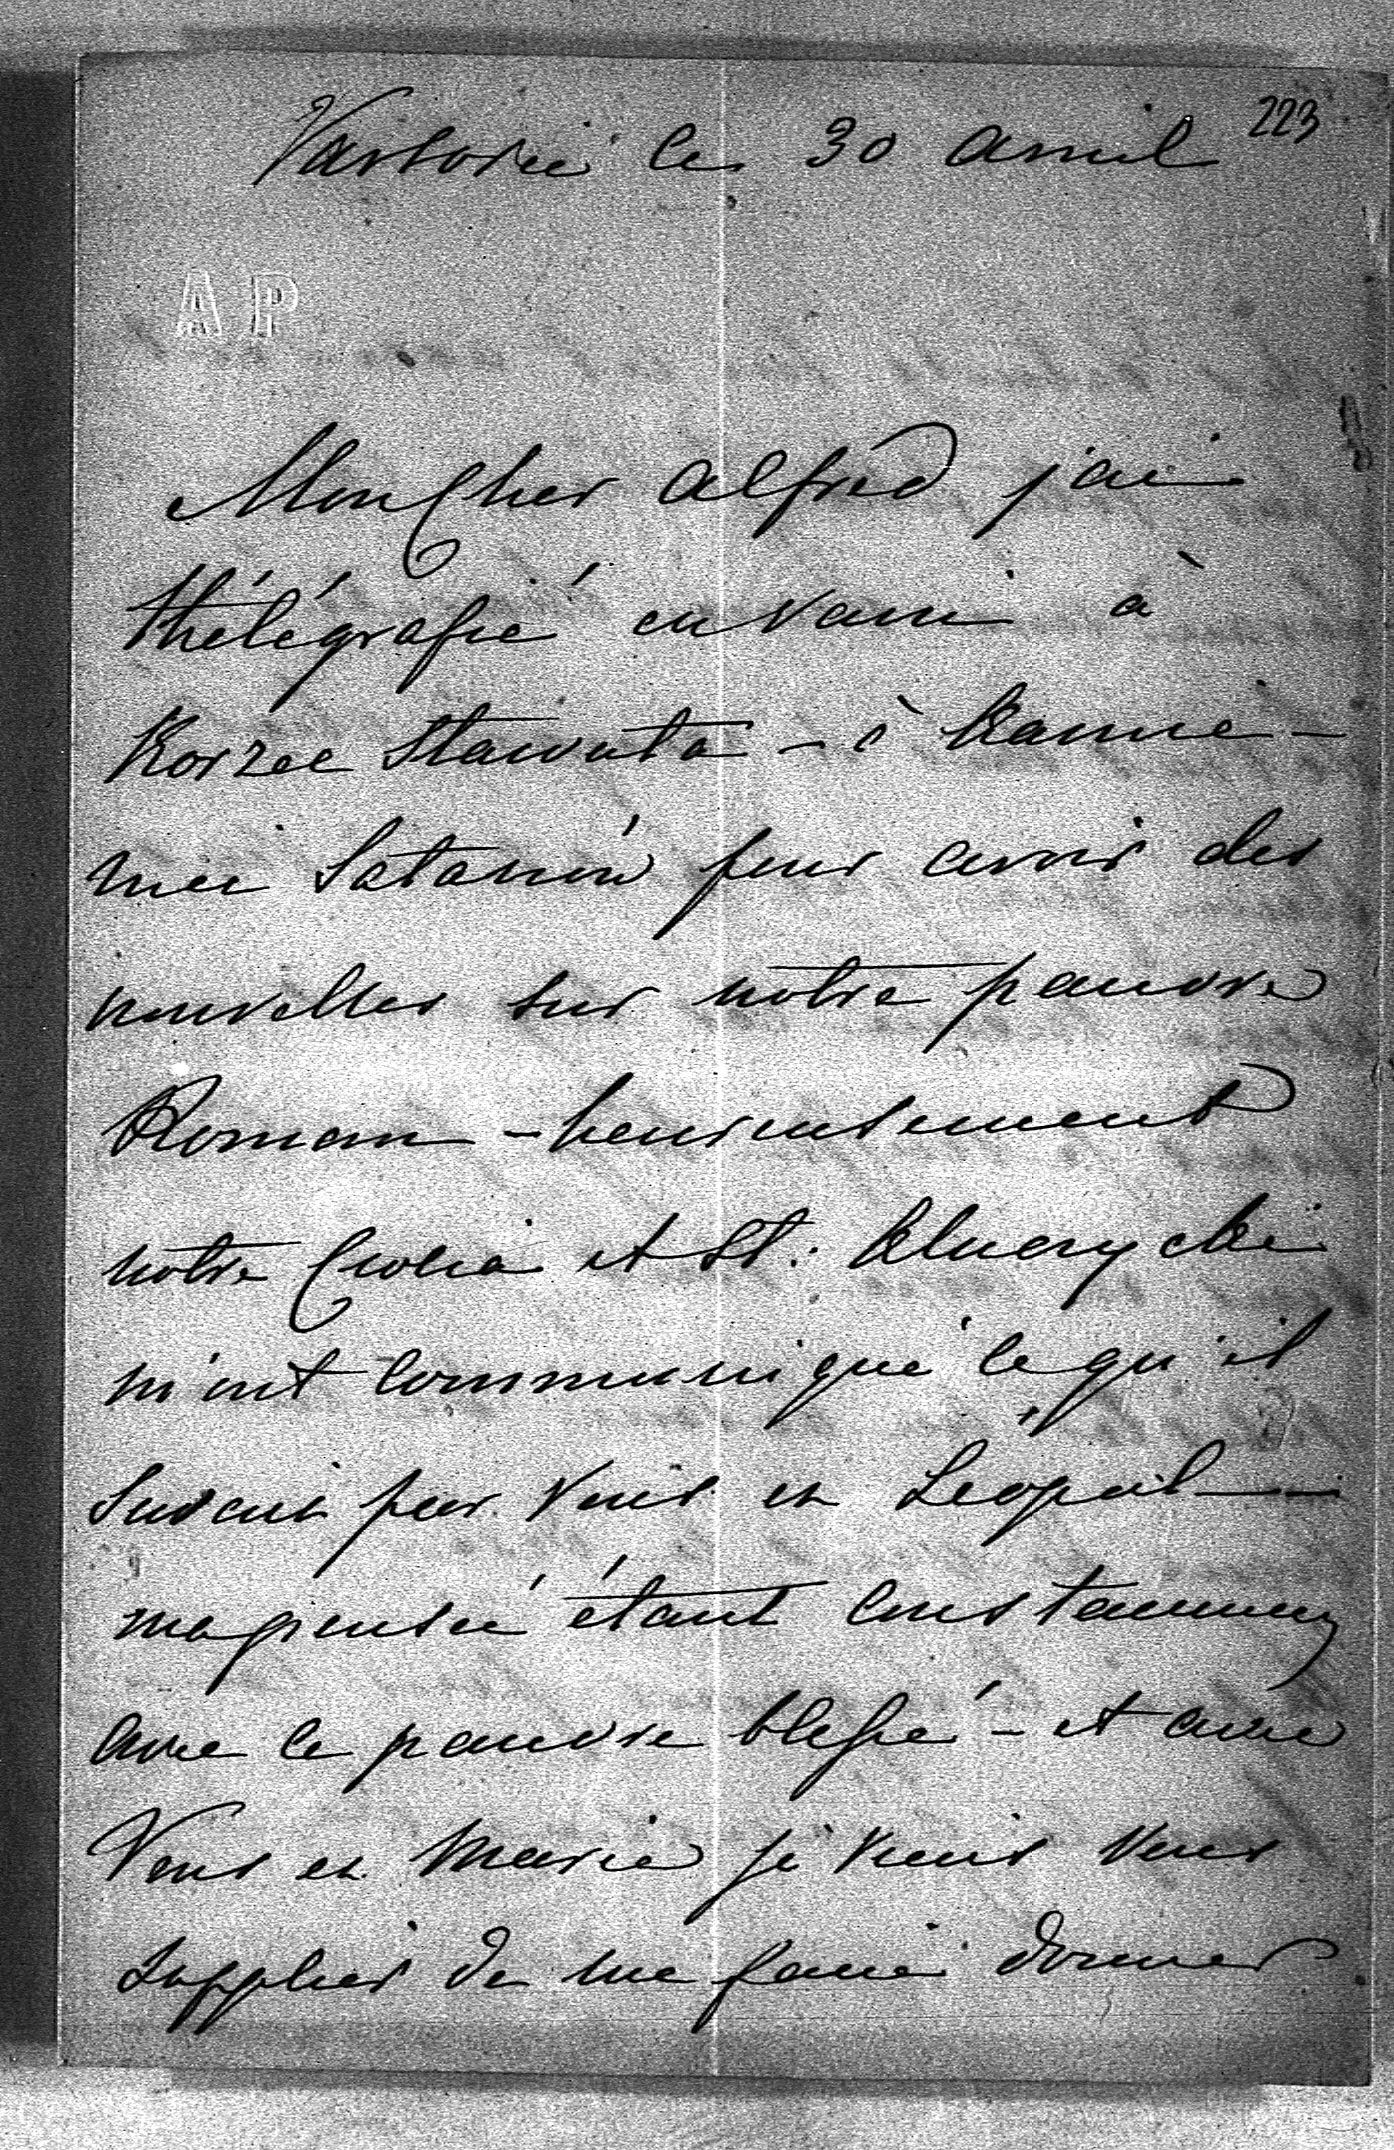 Varsovie le 30 avril 223
A P
Mon Cher Alfred j'ai
thélégrafié en vain à
Korzec Slawuta - à Kamie-
niec Satanów pour avoir des
nouvelles sur notre pauvre
Roman - heureusement
notre et St. Kluczycki
m'ont communiqué ce qu'il
savait par Vous et Léopol -
ma pensée étant constamment
avec ce pauvre blessé - et avec
Vous et Marie je viens Vous
supplier de me faire donner